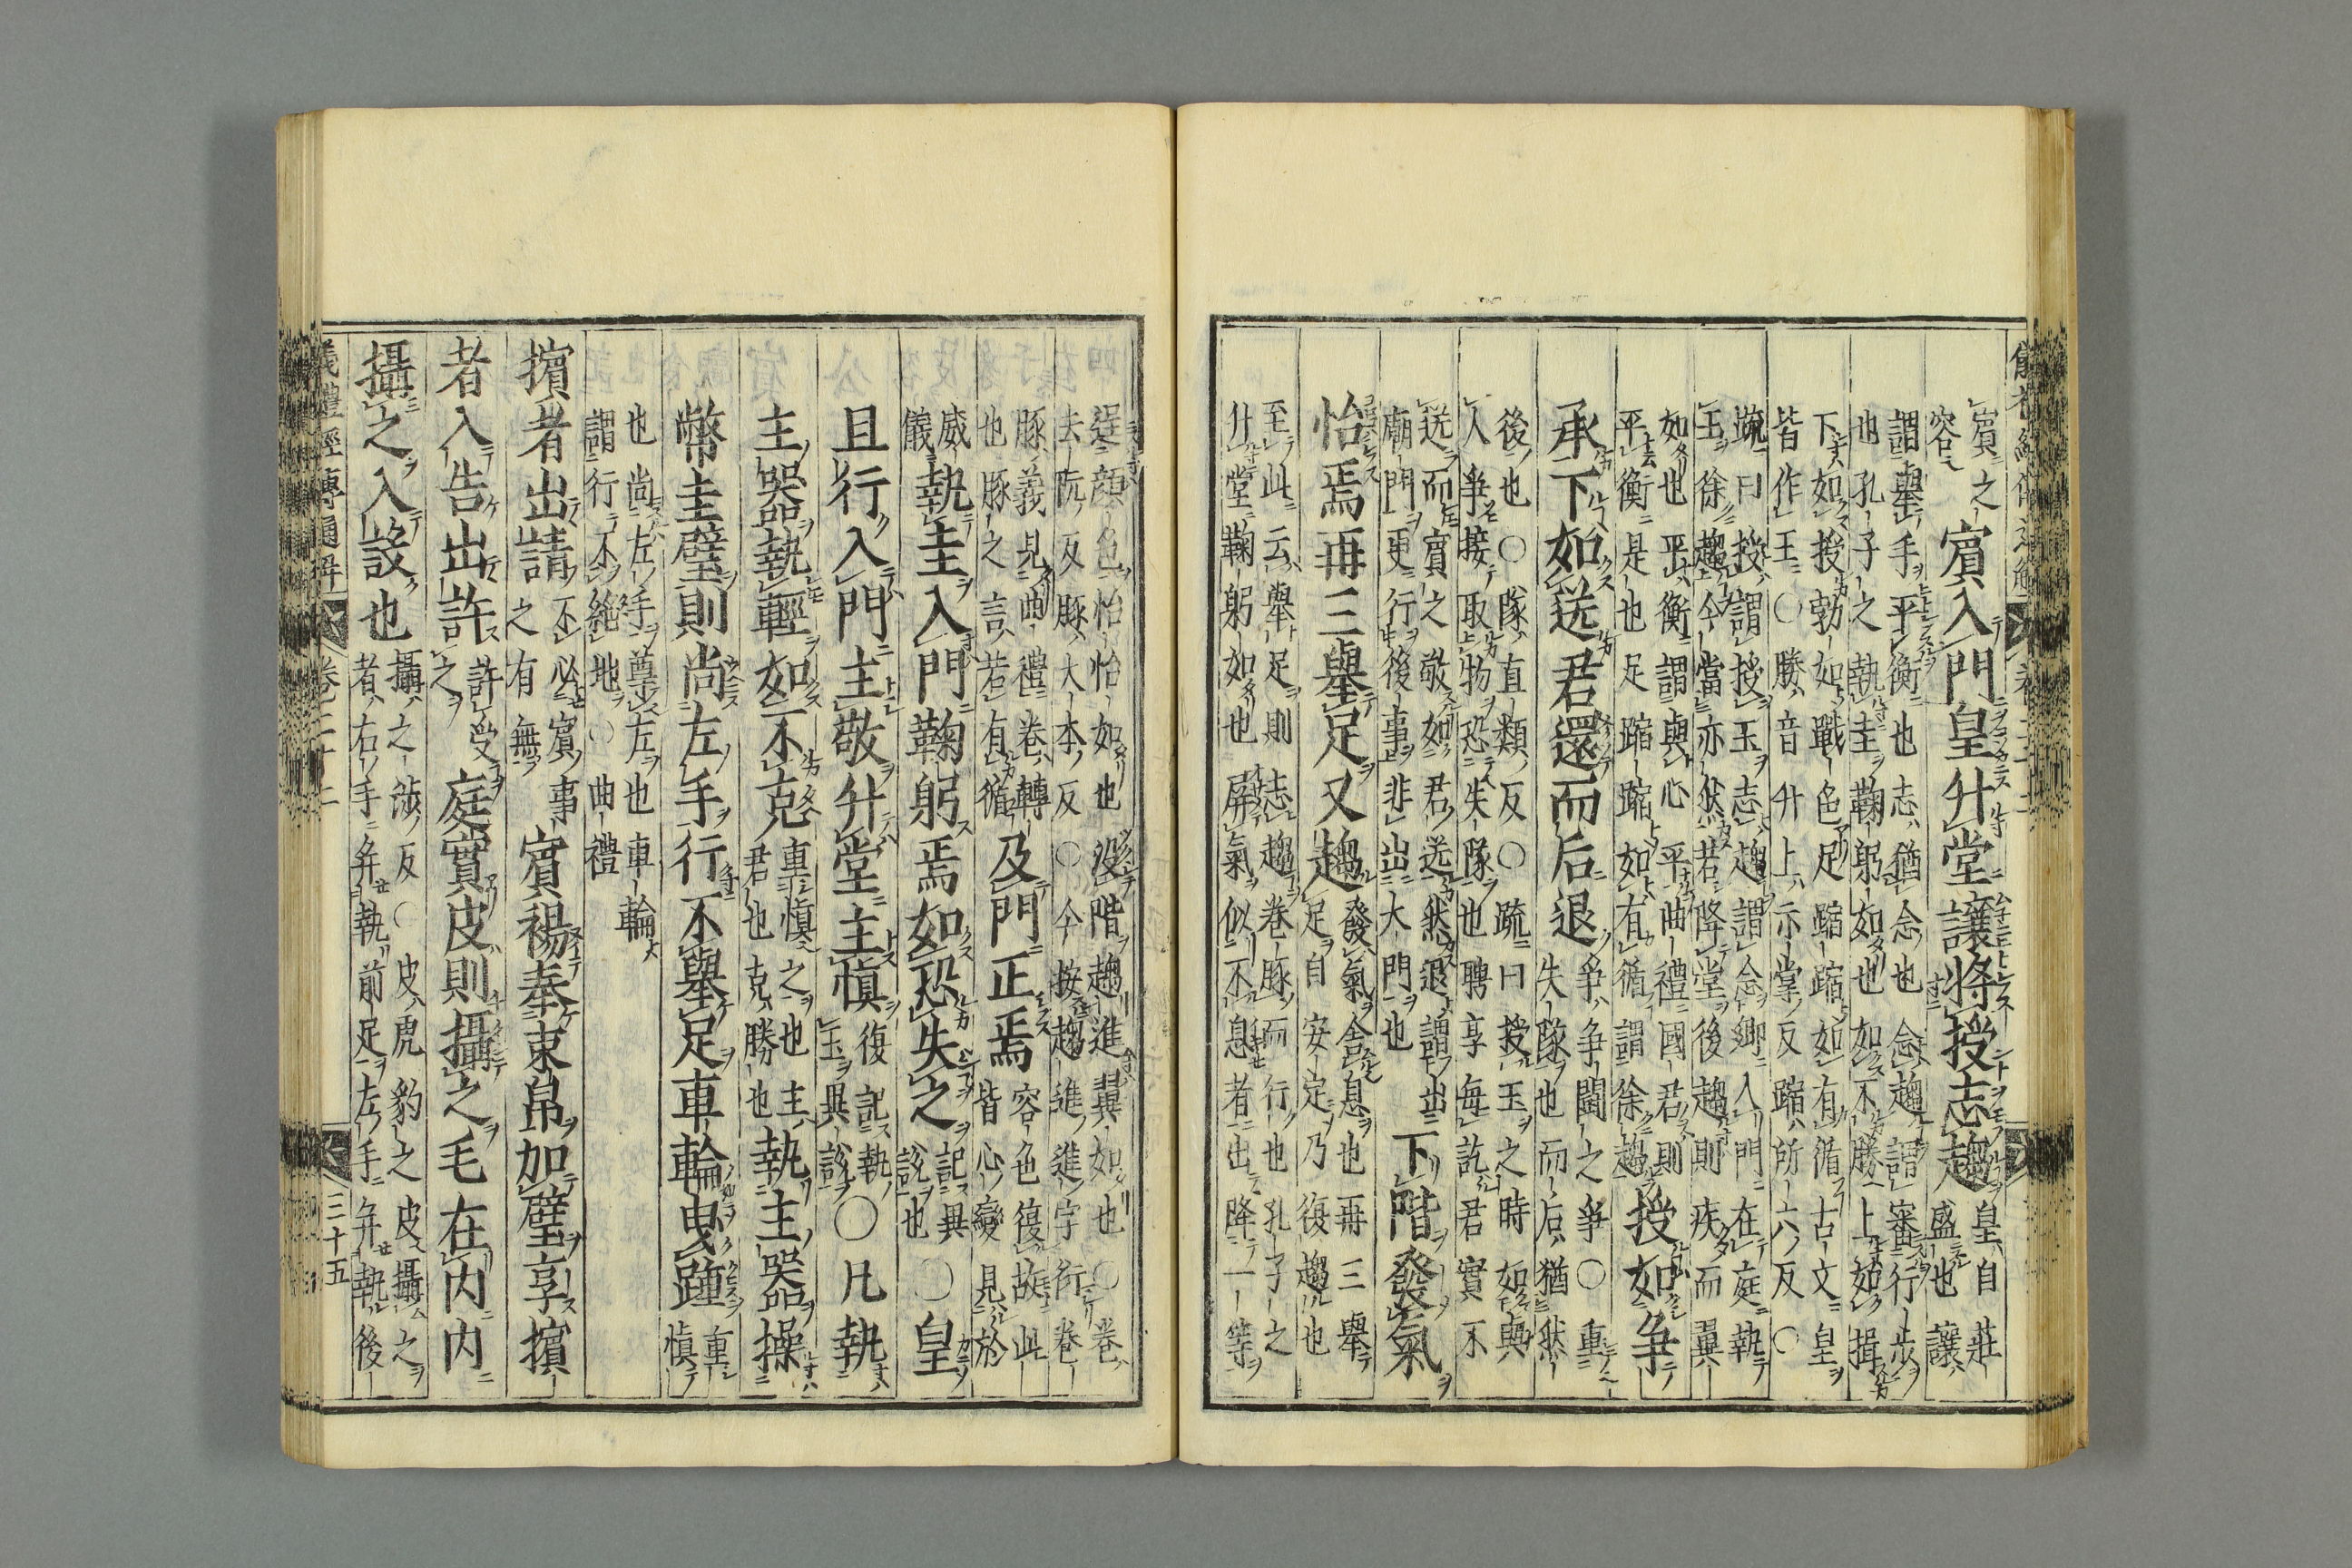 賓之容賓入門皇升堂讓將授志趨皇自莊盛也讓
謂舉手平衡也志猶念也念趨謂審行步
也孔子之執圭鞠躬如也如不勝上如揖
下如授勃如戰色足蹜蹜如有循古文皇
皆作王○勝音升上示掌反蹜所六反○
疏曰授謂授玉志趨謂念鄉入門在庭執
玉徐趨今當亦然若降堂後趨則疾而翼
如也平衡謂與心平曲禮國君則
平衡是也足蹜蹜如有循謂徐趨授如爭
承下如送君還而后退爭爭鬪之爭○重失隊也而后猶然
後也○隊直類反○疏曰授玉之時如與
人爭接取物恐失隊也聘享每訖君實不
送而賓之敬如君送然退謂出
廟門更行後事非出大門也下階發氣
怡焉再三舉足又趨發氣舍息也再三舉足自安定乃復趨也
至此云舉足則志趨卷豚而行也孔子之
升堂鞠躬如也屏氣似不息者出降一等
逞顏色怡怡如也沒階趨進翼如也○卷
去阮反豚大本反○今按趨進進字衍卷
豚義見曲禮卷轉也豚之言若有循及門正焉容色復故此皆心變見於
威儀執圭入門鞠躬焉如恐失之記異說也○皇
且行入門主敬升堂主慎復記執玉異說○凡執
主器執輕如不克重慎之也主君也克勝也執主器操
幣圭璧則尚左手行不舉足車輪曳踵重慎
也尚左手尊左也車輪
謂行不絕地○曲禮
擯者出請不必賓事之有無賓裼奉束帛加璧享擯
者入告出許許受之庭實皮則攝之毛在內內
攝之入設也攝之涉反○皮虎豹之皮攝之者右手并執前足左手并執後
儀禮經傳通解 卷二十二 三十五